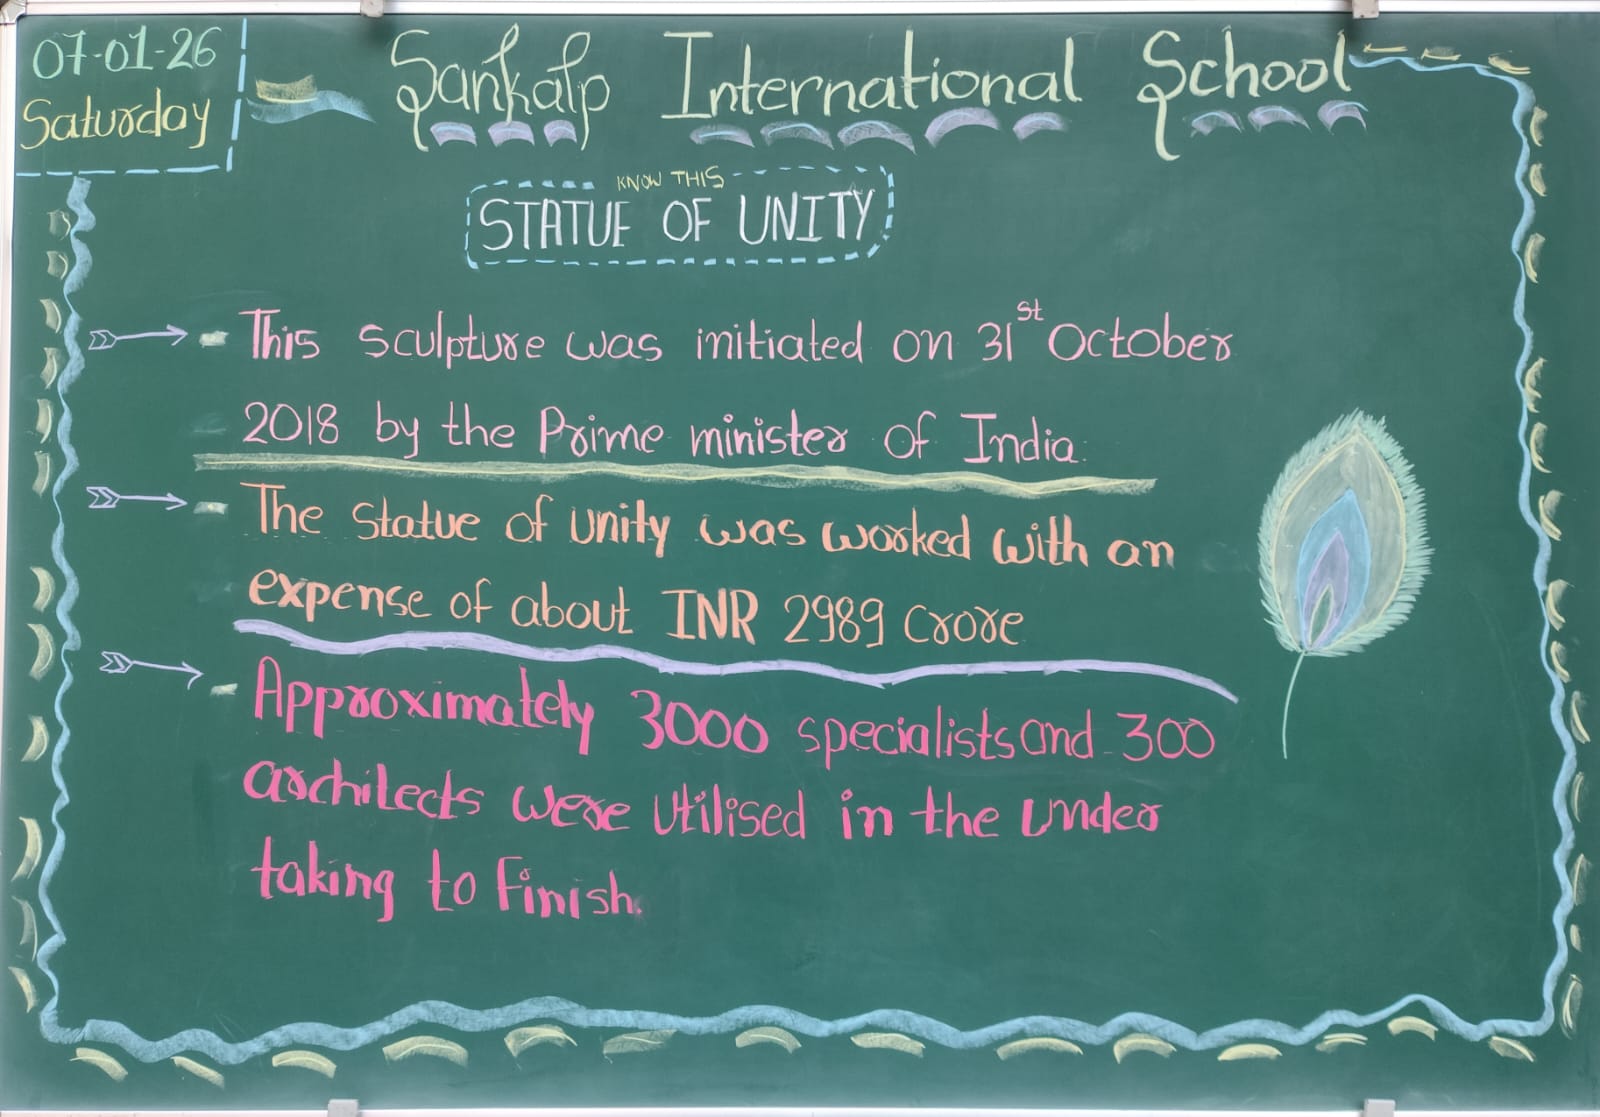 07-01-26
Saturday
Sankalp International School
KNOW THIS
STATUE OF UNITY
This sculpture was initiated on 31st October
2018 by the Prime minister of India.
The Statue of unity was worked with an
expense of about INR 2989 Crore
Approximately 3000 specialists and 300
architects were utilised in the under
taking to finish.